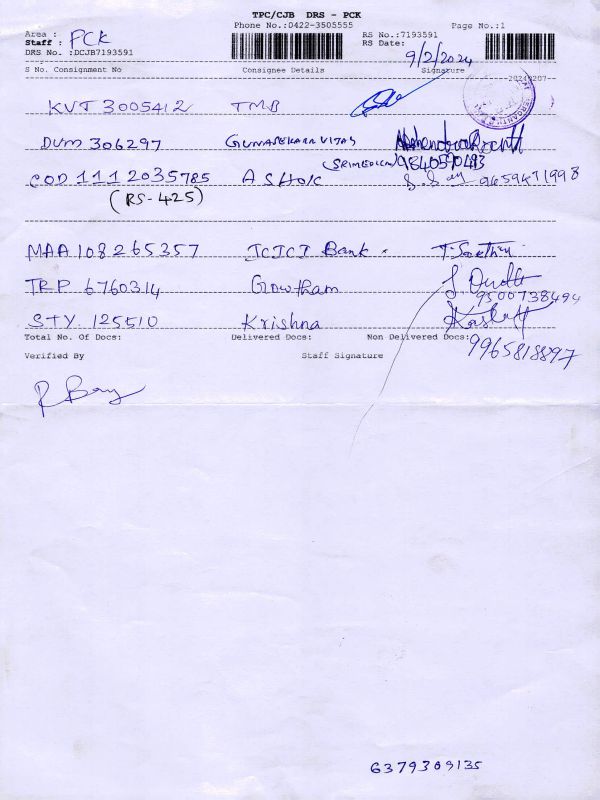 TPC/CJB DRS - PCK
Phone No.:0422-3505555 Page No.:1
Area : PCK RS No.:7193591
Staff : RS Date: 9/2/2024
DRS No. :DCJB7193591
S No. Consignment No Consignee Details Signature
20240207
KVT 3005412 TMB
DUM 306297 GUNASEKARA VITAS
(SRIMEDICAL) 9840590493
COD 1112035785 ASHOK 9659471998
(RS-425)
MAA 108265357 ICICI Bank
TRP 6760314 Gowtham
9500738494
STY. 125510 Krishna
Total No. Of Docs: Delivered Docs: Non Delivered Docs:
9965818897
Verified By Staff Signature
6379309135